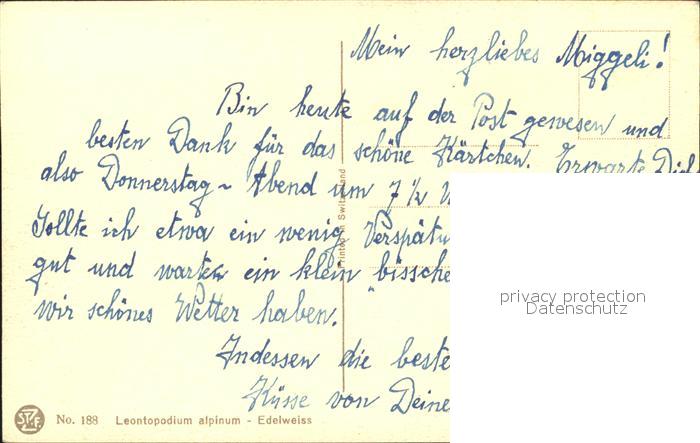 Mein herzliebes Miggeli!
Bin heute auf der Post gewesen und
besten Dank für das schöne Kärtchen. Erwarte Dich
also Donnerstag-Abend um 7 1/2
Sollte ich etwa ein wenig Verspätu
gut und warten ein klein bissche
wir schönes Wetter haben.
Indessen die beste
Küsse von Deine
Printed in Switzerland
privacy protection
Datenschutz
No. 188 Leontopodium alpinum - Edelweiss